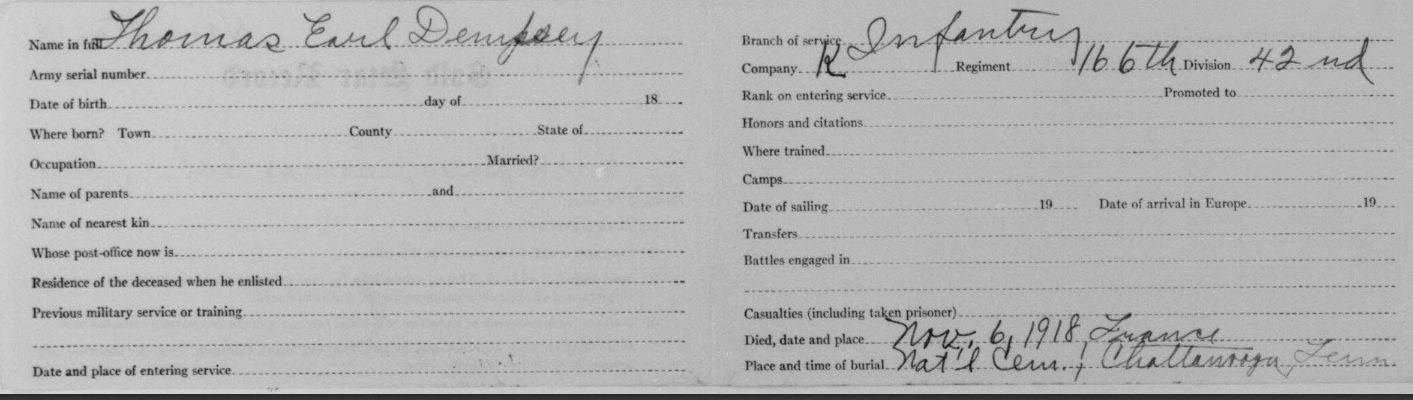 Name in full Thomas Earl Dempsey
Army serial number
Date of birth day of 18
Where born? Town County State of
Occupation Married?
Name of parents and
Name of nearest kin
Whose post-office now is
Residence of the deceased when he enlisted
Previous military service or training
Date and place of entering service
Branch of service Infantry
Company K Regiment 166th Division 42nd
Rank on entering service Promoted to
Honors and citations
Where trained
Camps
Date of sailing 19 Date of arrival in Europe 19
Transfers
Battles engaged in
Casualties (including taken prisoner)
Died, date and place Nov. 6, 1918, France
Place and time of burial Nat'l Cem., Chattanooga, Tenn